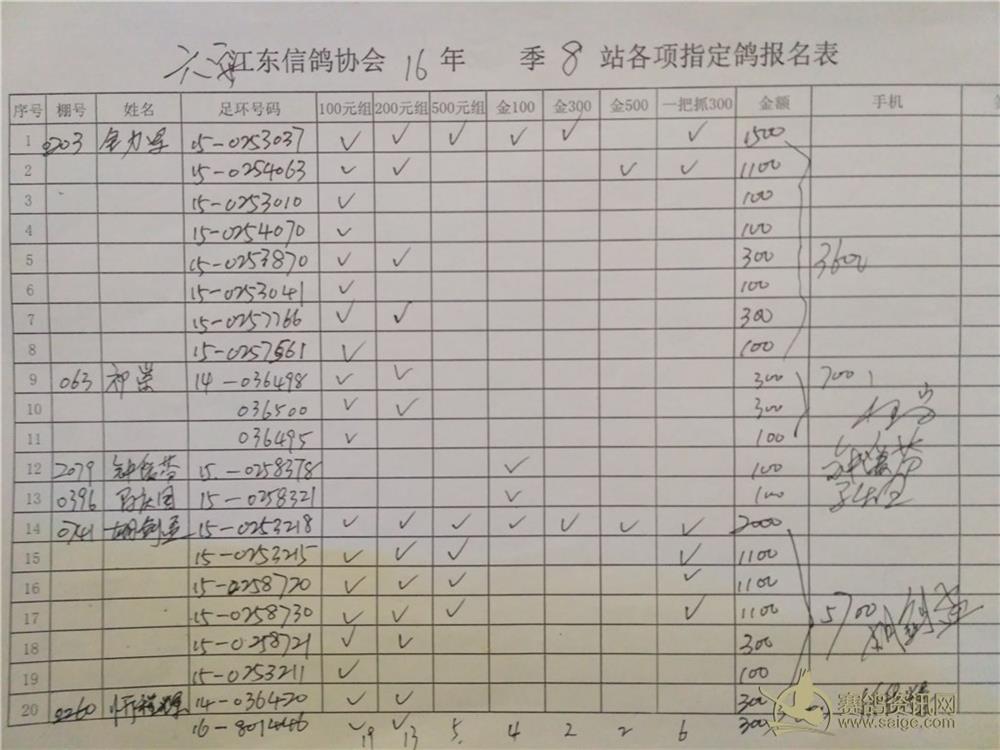 江东信鸽协会 16 年 季 8 站各项指定鸽报名表
序号 棚号 姓名 足环号码 100元组 200元组 500元组 金100 金300 金500 一把抓300 金额 手机
1 0203 15-0253037 ✓ ✓ ✓ ✓ ✓ ✓ 1500
2 15-0254063 ✓ ✓ ✓ ✓ 1100
3 15-0253010 ✓ 100
4 15-0254070 ✓ 100
5 15-0253870 ✓ ✓ 300 3600
6 15-0253041 ✓ 100
7 15-0257766 ✓ ✓ 300
8 15-0257561 ✓ 100
9 063 14-036498 ✓ ✓ 300 700
10 036500 ✓ ✓ 300
11 036495 ✓ 100
12 2079 15-0258378 ✓ 100
13 0396 15-0258321 ✓ 100
14 0741 15-0253218 ✓ ✓ ✓ ✓ ✓ ✓ ✓ 2000
15 15-0253215 ✓ ✓ ✓ ✓ 1100
16 15-0258720 ✓ ✓ ✓ ✓ 1100
17 15-0258730 ✓ ✓ ✓ ✓ 1100 5700
18 15-0258721 ✓ ✓ 300
19 15-0253211 ✓ 100
20 0260 14-036420 ✓ ✓ 300
✓ ✓ 300
19 13 5 4 2 2 6
赛鸽资讯网
www.saige.com